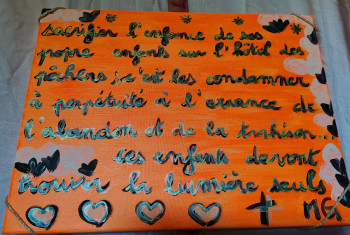 sacrifier l'enfance de ses
propre enfants sur l'hôtel des
péchers ; c'est les condamner
à perpétuité à l'errance de
l'abandon et de la trahison...
ces enfants devront
trouver la lumière seuls
MG